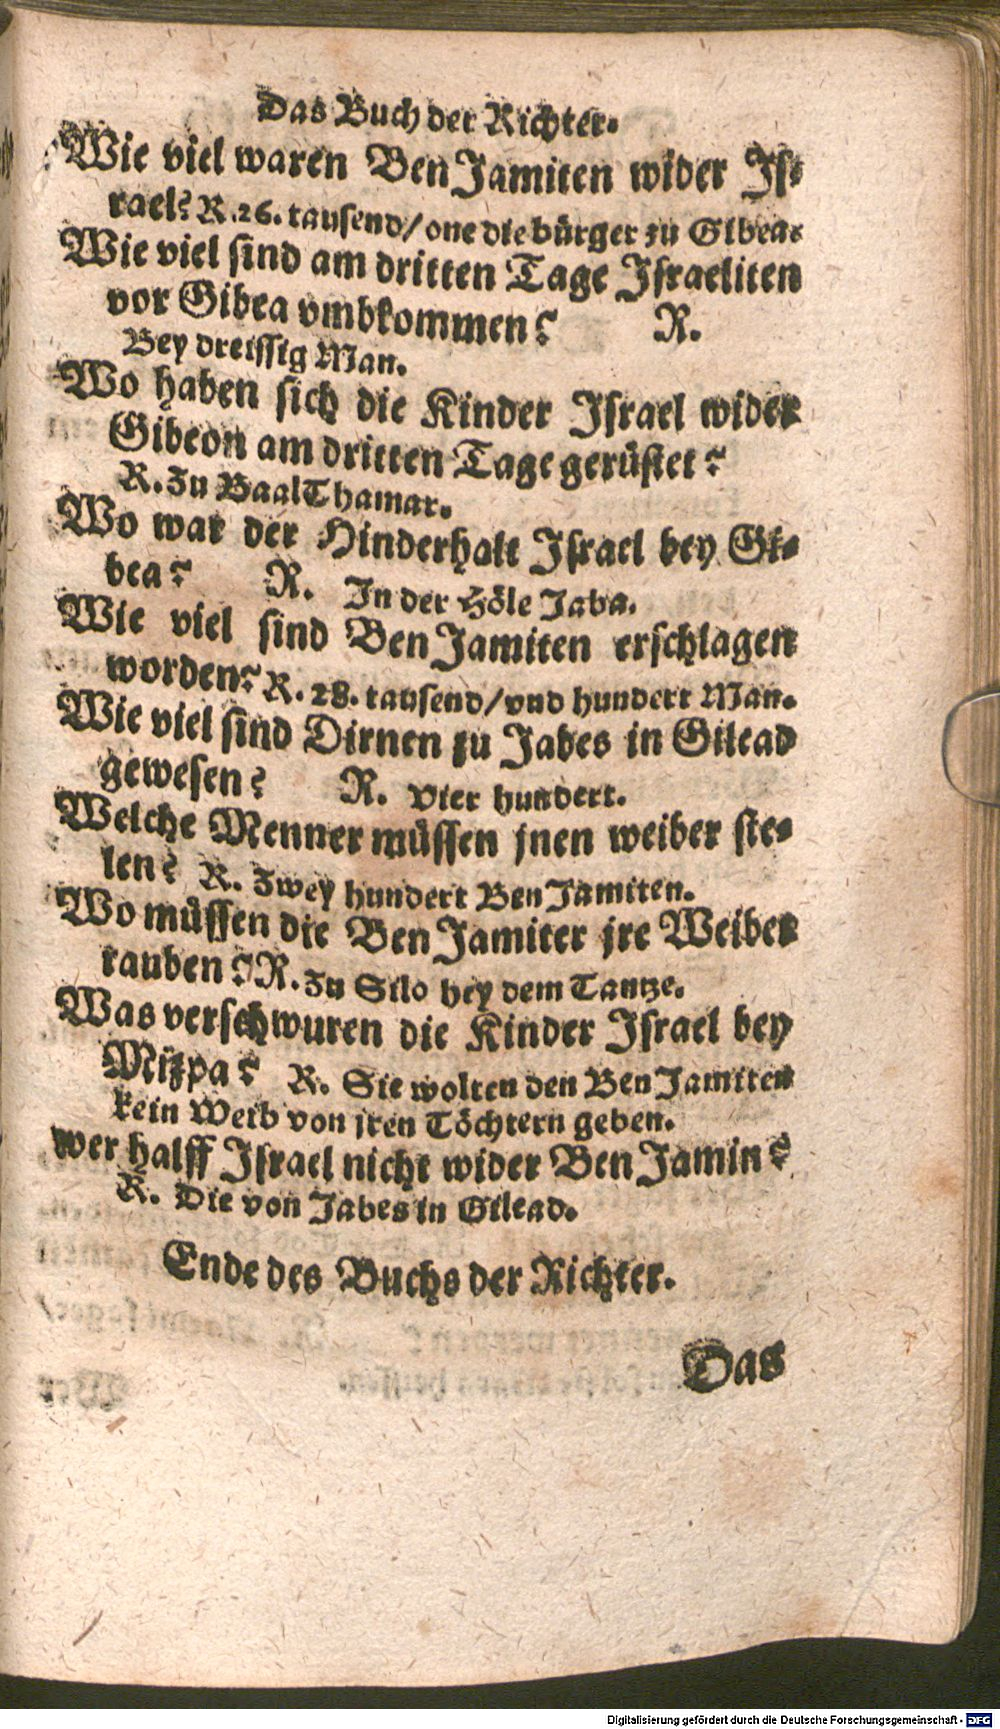 Das Buch der Richter.
Wie viel waren Ben Jamiten wider Js-
rael? R. 26. tausend/ one die bürger zu Gibea.
Wie viel sind am dritten Tage Jsraeliten
vor Gibea vmbkommen? R.
Bey dreissig Man.
Wo haben sich die Kinder Jsrael wider
Gibeon am dritten Tage gerüstet?
R. Zu BaalThamar.
Wo war der Hinderhalt Jsrael bey Gi-
bea? R. Jn der Höle Jaba.
Wie viel sind Ben Jamiten erschlagen
worden? R. 28. tausend/ vnd hundert Man.
Wie viel sind Dirnen zu Jabes in Gilead
gewesen? R. Vier hundert.
Welche Menner müssen jnen weiber ste-
len? R. Zwey hundert Ben Jamiten.
Wo müssen die Ben Jamiter jre Weiber
rauben? R. Zu Silo bey dem Tantze.
Was verschwuren die Kinder Jsrael bey
Mizpa? R. Sie wolten den Ben Jamiten
kein Weib von jren Töchtern geben.
wer halff Jsrael nicht wider Ben Jamin?
R. Die von Jabes in Gilead.
Ende des Buchs der Richter.
Das
Digitalisierung gefördert durch die Deutsche Forschungsgemeinschaft - DFG